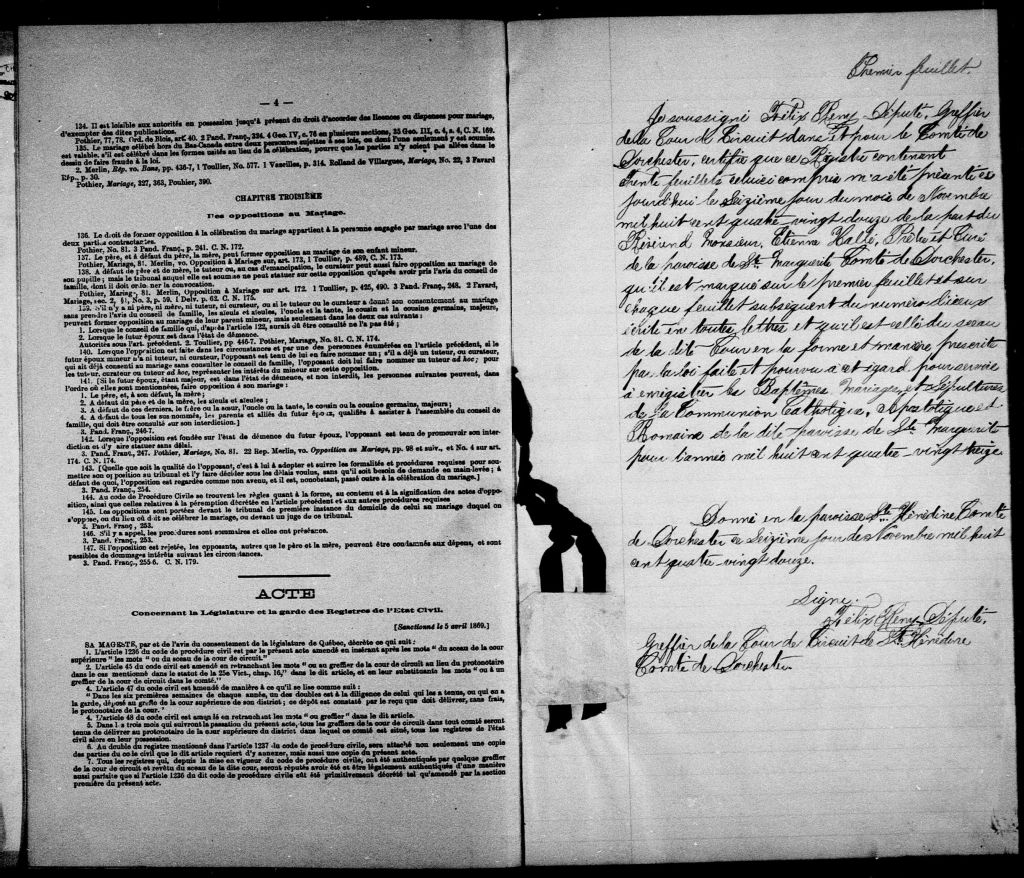 — 4 —
134. Il est loisible aux autorités en possession jusqu'à présent du droit d'accorder des licences ou dispenses pour mariage,
d'exempter des dites publications.
Pothier, 77, 78. Ord. de Blois, art. 40. 2 Pand. Franç., 324. 4 Geo. IV, c. 76 en plusieurs sections, 35 Geo. III, c. 4, s. 4, C. N. 169.
135. Le mariage célébré hors du Bas-Canada entre deux personnes sujettes à ses lois, ou dont l'une seulement y est soumise
est valable, s'il est célébré dans les formes usités au lieu de la célébration, pourvu que les parties n'y soient pas allées dans le
dessin de faire fraude à la loi.
2. Merlin, Rép. vo. Bans, pp. 436-7, 1 Toullier, No. 577. 1 Vazeilles, p. 314. Rolland de Villargues, Mariage, No. 22, 3 Favard
Rép., p. 30.
Pothier, Mariage, 327, 363, Pouhier, 390.
CHAPITRE TROISIÈME
Des oppositions au Mariage.
136. Le droit de former opposition à la célébration du mariage appartient à la personne engagée par mariage avec l'une des
deux parties contractantes.
Pothier, No. 81. 3 Pand. Franç., p. 241. C. N. 172.
137. Le père, et à défaut du père, la mère, peut former opposition au mariage de son enfant mineur.
Pothier, Mariage, 81. Merlin, vo. Opposition à Mariage sur, art. 173, 1 Toullier, p. 489, C. N. 173.
138. A défaut de père et de mère, le tuteur ou, au cas d'émancipation, le curateur peut aussi faire opposition au mariage de
son pupille; mais le tribunal auquel elle est soumise ne peut statuer sur cette opposition qu'après avoir pris l'avis du conseil de
famille, dont il doit ordonner la convocation.
Pothier, Mariage, 81. Merlin, Opposition à Mariage sur art. 172. 1 Toullier, p. 425, 490. 3 Pand. Franç., 248. 2 Favard,
Mariage, sec. 2, §1, No. 3, p. 59. 1 Delv. p. 62. C. N. 175.
139. S'il n'y a ni père, ni mère, ni tuteur, ni curateur, ou si le tuteur ou le curateur a donné son consentement au mariage
sans prendre l'avis du conseil de famille, les aïeuls et aïeules, l'oncle et la tante, le cousin et la cousine germains, majeurs,
peuvent former opposition au mariage de leur parent mineur, mais seulement dans les deux cas suivants:
1. Lorsque le conseil de famille qui, d'après l'article 122, aurait dû être consulté ne l'a pas été;
2. Lorsque le futur époux est dans l'état de démence.
Autorités sous l'art. précédent. 2. Toullier, pp 446-7. Pothier, Mariage, No. 81. C. N. 174.
140. Lorsque l'opposition est faite dans les circonstances et par une des personnes énumérées en l'article précédent, si le
futur époux mineur n'a ni tuteur, ni curateur, l'opposant est tenu de lui en faire nommer un; s'il a déjà un tuteur, ou curateur,
qui ait déjà consenti au mariage sans consulter le conseil de famille, l'opposant doit lui faire nommer un tuteur ad hoc; pour
les tuteur, curateur ou tuteur ad hoc, représenter les intérêts du mineur sur cette opposition.
141. [Si le futur époux, étant majeur, est dans l'état de démence, et non interdit, les personnes suivantes peuvent, dans
l'ordre où elles sont mentionnées, faire opposition à son mariage:
1. Le père, et, à son défaut, la mère;
2. A défaut du père et de la mère, les aïeuls et aïeules;
3. A défaut de ces derniers, le frère ou la sœur, l'oncle ou la tante, le cousin ou la cousine germains, majeurs;
4. A défaut de tous les sus nommés, les parents et alliés du futur époux, qualifiés à assister à l'assemblée du conseil de
famille, qui doit être consulté sur son interdiction.]
3. Pand. Franç., 246-7.
142. Lorsque l'opposition est fondée sur l'état de démence du futur époux, l'opposant est tenu de promouvoir son inter-
diction et d'y faire statuer sans délai.
3. Pand. Franç., 247. Pothier, Mariage, No. 81. 22 Rep. Merlin, vo. Opposition au Mariage, pp. 98 et suiv., et No. 4 sur art.
174. C. N. 174.
143. [Quelle que soit la qualité de l'opposant, c'est à lui à adopter et suivre les formalités et procédures requises pour sou-
mettre son opposition au tribunal et l'y faire décider sous les délais voulus, sans qu'il soit besoin de demande en mainlevée; à
défaut de quoi, l'opposition est regardée comme non avenue, et il est, nonobstant, passé outre à la célébration du mariage.]
3. Pand. Franç., 254.
144. Au code de Procédure Civile se trouvent les règles quant à la forme, au contenu et à la signification des actes d'oppo-
sition, ainsi que celles relatives à la péremption décrétée en l'article précédent et aux autres procédures requises
145. Les oppositions sont portées devant le tribunal de première instance du domicile de celui au mariage duquel on
s'oppose, ou du lieu où doit se célébrer le mariage, ou devant un juge de ce tribunal.
2. Pand. Franç., 253.
146. S'il y a appel, les procédures sont sommaires et elles ont préséance.
3. Pand. Franç., 253.
147. Si l'opposition est rejetée, les opposants, autres que le père et la mère, peuvent être condamnés aux dépens, et sont
passibles de dommages intérêts suivant les circonstances.
3. Pand. Franç., 255-6. C. N. 179.
ACTE
Concernant la Législature et la garde des Registres de l'Etat Civil.
[Sanctionné le 5 avril 1869.]
SA MAGESTÉ, par et de l'avis du consentement de la législature de Québec, décrète ce qui suit:
1. L'article 1236 du code de procédure civil est par le présent acte amendé en insérant après les mots "du sceau de la cour
supérieure" les mots "ou du sceau de la cour de circuit."
2. L'article 45 du code civil est amendé en retranchant les mots "ou en greffier de la cour de circuit au lieu du protonotaire
dans le cas mentionné dans le statut de la 25e Vict., chap. 16," dans le dit article, et en leur substituant les mots "ou à un
greffier de la cour de circuit dans le comté."
4. L'article 47 du code civil est amendé de manière à ce qu'il se lise comme suit:
"Dans les six premières semaines de chaque année, un des doubles est à la diligence de celui qui les a tenus, ou qui en a
la garde, déposé au greffe de la cour supérieure de son district; ce dépôt est constaté par le reçu que doit délivrer, sans frais,
le protonotaire de la cour."
4. L'article 48 du code civil est amendé en retranchant les mots "ou greffier" dans le dit article.
5. Dans les trois mois qui suivront la passation du présent acte, tous les greffiers de la cour de circuit dans tout comté seront
tenus de délivrer au protonotaire de la cour supérieure du district dans lequel ce comté est situé, tous les registres de l'état
civil alors en leur possession.
6. Au double du registre mentionné dans l'article 1237 du code de procédure civile, sera attaché non seulement une copie
des parties du code civile que le dit article requiert d'y annexer, mais aussi une copie du présent acte.
7. Tous les registres qui, depuis la mise en vigueur du code de procédure civile, ont été authentiqués par quelque greffier
de la cour de circuit et revêtu du sceau de la dite cour, seront réputés avoir été et être légalement authentiqués d'une manière
aussi parfaite que si l'article 1236 du dit code de procédure civile eût été primitivement décrété tel qu'amendé par la section
première du présent acte.
Premier feuillet.
Je soussigné Félix Rémy Député, Greffier
de la Cour de Circuit dans et pour le Comté de
Dorchester, certifie que ce Régistre contenant
trente feuillets celui ci compris m'a été présenté ce
jourd'hui le Seizième jour du mois de Novembre
mil huit cent quatre-vingt douze de la part du
Révérend Monsieur, Etienne Hallé, Prêtre et Curé
de la paroisse de Ste Marguerite Comté de Dorchester,
qu'il est marqué sur le premier feuillet et sur
chaque feuillet subséquent du numéro d'iceux
écrit en toutes lettres et qu'il est cellé du sceau
de la dite Cour en la forme et manière prescrite
par la loi faite et pourvu à cet égard pour servir
à enregistrer les Baptêmes Mariages, et Sépultures
de la Communion Catholique, Apostolique et
Romaine de la dite paroisse de Ste Marguerite
pour l'année mil huit cent quatre-vingt treize
Donné en la paroisse Ste Hénédine, Comté
de Dorchester ce Seizième jour de Novembre mil huit
cent quatre-vingt douze.
Signé.
Félix Rémy Député,
Greffier de la Cour de Circuit de Ste Hénédine
Comté de Dorchester